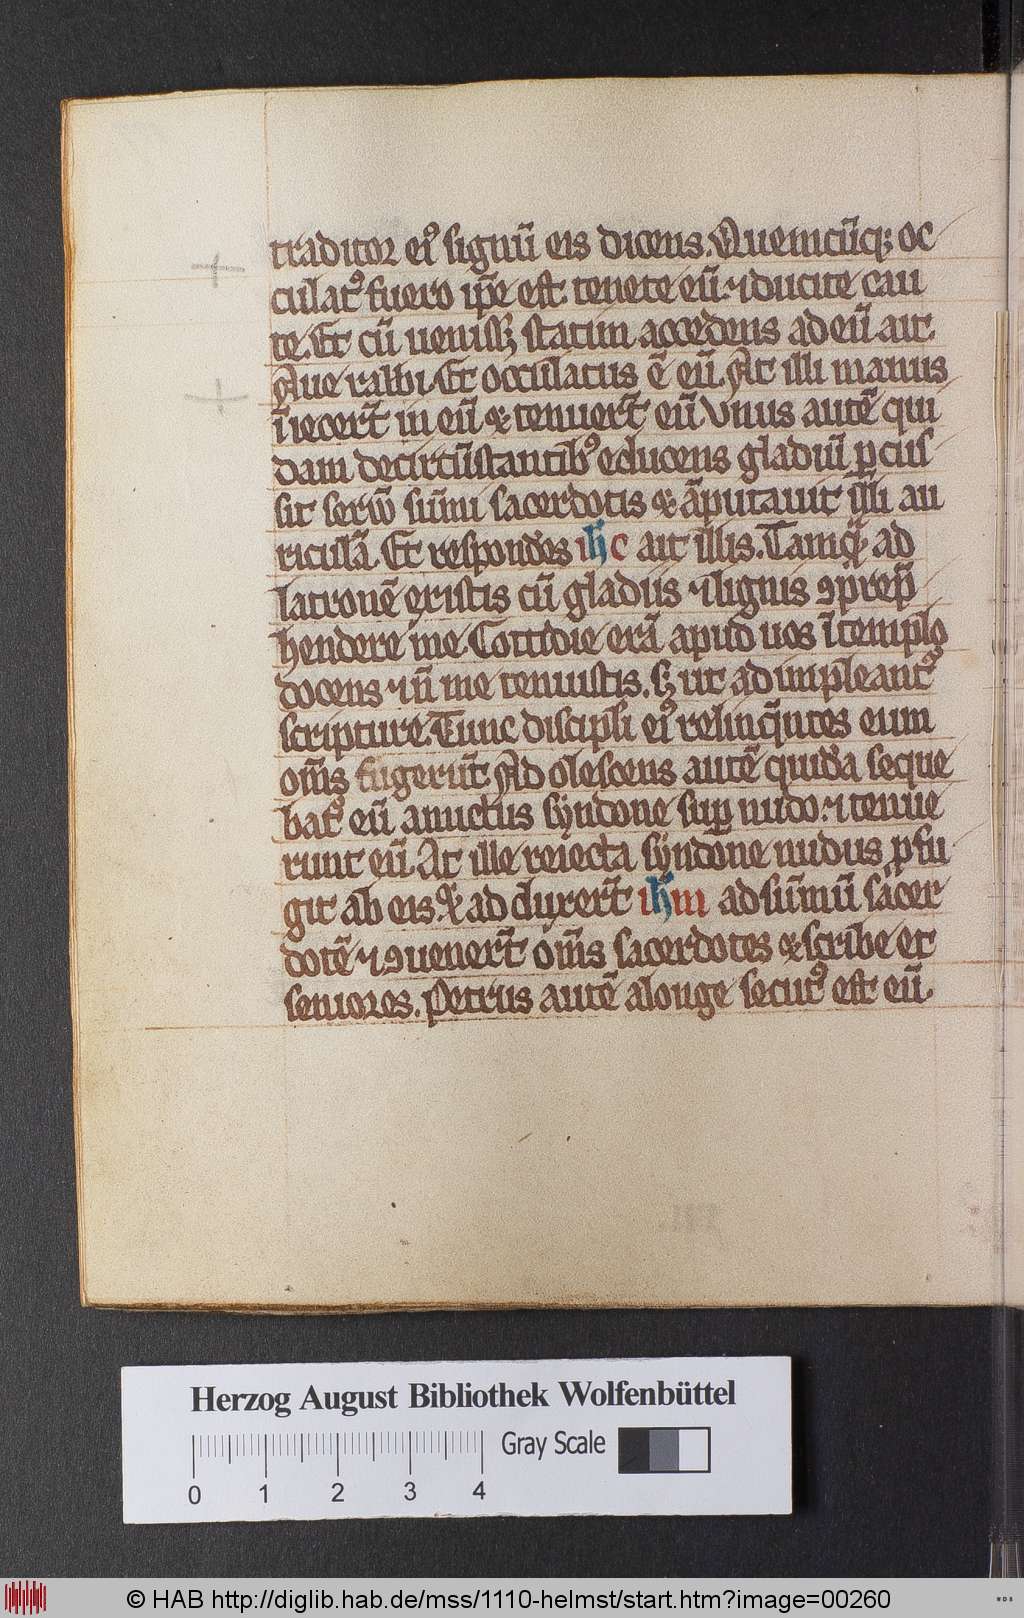 traditor ei⁹ signū eis dicens. Quemcūq; oc
culat⁹ fuero ip̄e est. tenete eū. ⁊ ducite cau
te. Et cū uenissꝫ statim accedens ad eū ait.
Aue rabbi. Et osculatus ē eū. At illi manus
īiecert̄ in eū & tenuert̄ eū Vnus autē qui
dam decircūstantib⁹ educens gladiū ꝑcus
sit seruū sūmi sacerdotis & āputauit illi au
riculā. Et respondēs ih̄c ait illis. Tamqͣ ad
latronē existis cū gladiis ⁊ lignis ꝯprep̄
hendere me. Cottidie erā apud uos ī templo
docens ⁊ n̄ me tenuistis. sꝫ ut adimpleantᷣ
scripture. Tunc discipli ei⁹ relinq̄ntes eum
om̄s fugerūt Adolescens autē quidā seque
batᷣ eū amictus syndone suꝑ nudo. ⁊ tenue
runt eū. At ille reiecta syndone nudus ꝓfu
git ab eis. & adduxert̄ ih̄m ad sūmū sacer
dotē ⁊ ꝯuenert̄ om̄s sacerdotes & scribe et
seniores. Petrus autē alonge secut⁹ est eū.
Herzog August Bibliothek Wolfenbüttel
Gray Scale
0 1 2 3 4
© HAB http://diglib.hab.de/mss/1110-helmst/start.htm?image=00260